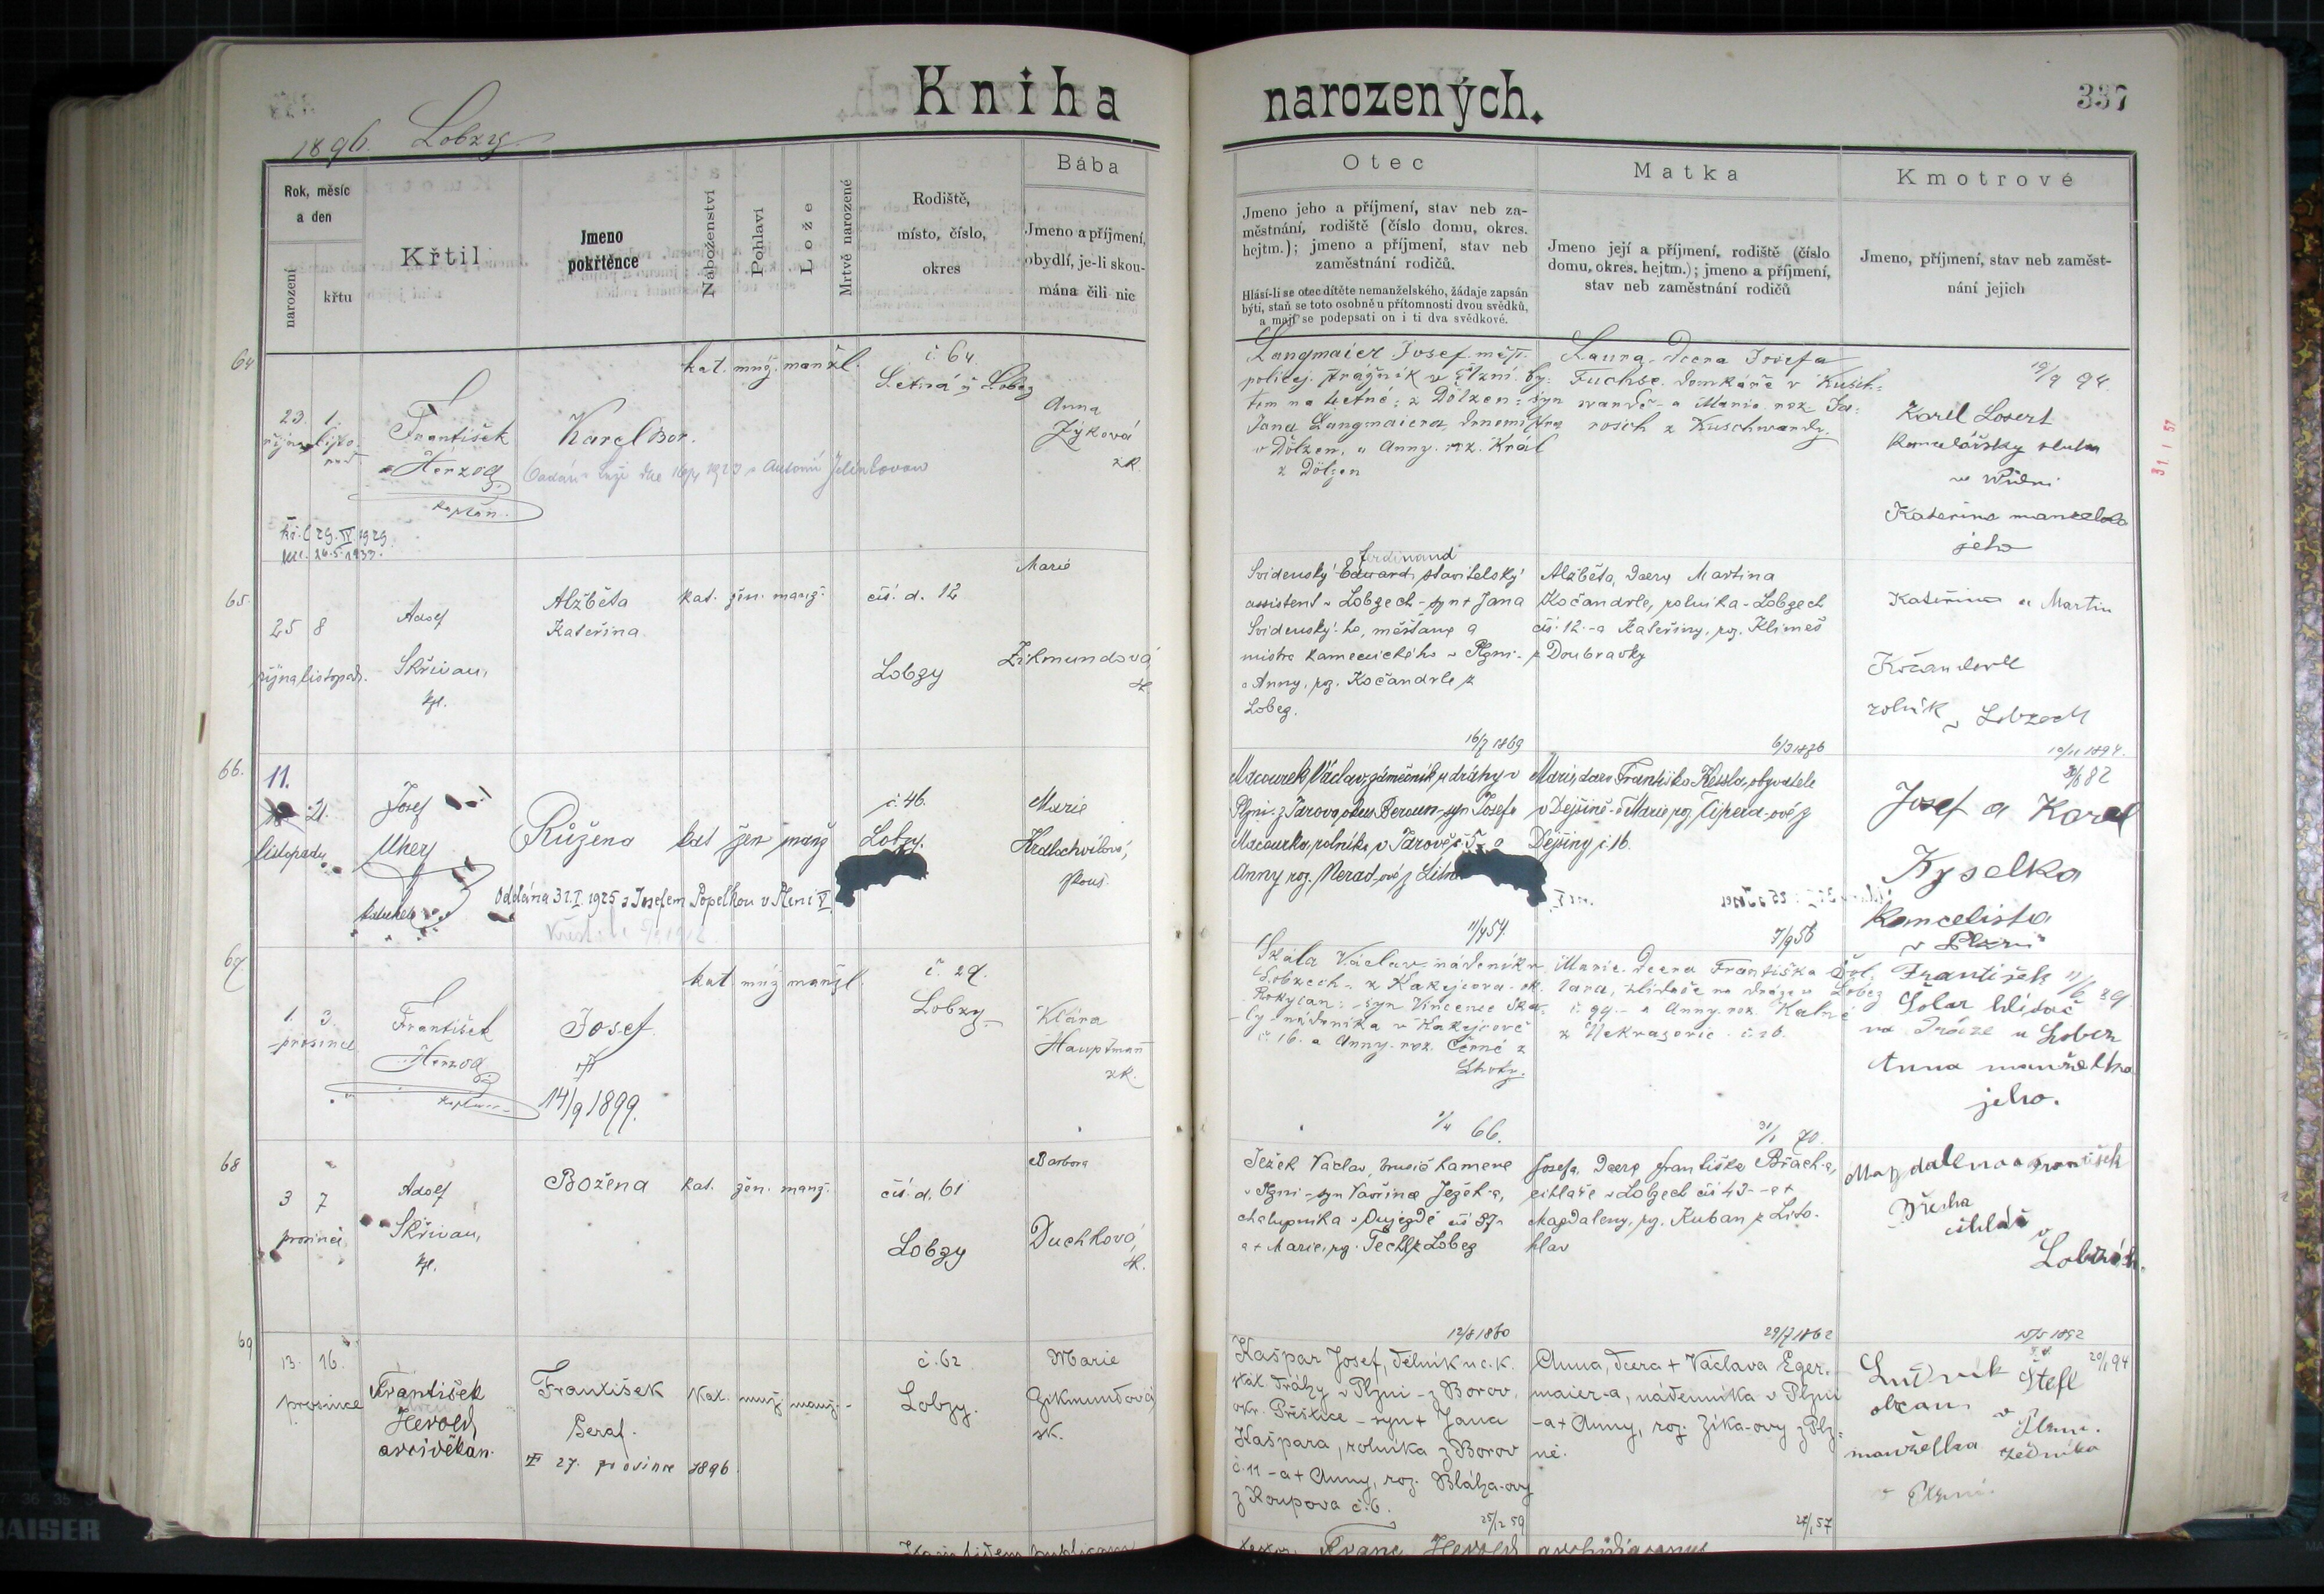 Kniha
narozených.
337
1896. Lobzy
Rok, měsíc
a den
narození
křtu
Křtil
Jmeno
pokřtěnce
Náboženství
Pohlaví
Lože
Mrtvě narozené
Rodiště,
místo, číslo,
okres
Bába
Jmeno a příjmení,
obydlí, je-li skou-
mána čili nic
Otec
Jmeno jeho a příjmení, stav neb za-
městnání, rodiště (číslo domu, okres.
hejtm.); jmeno a příjmení, stav neb
zaměstnání rodičů.
Hlásí-li se otec dítěte nemanželského, žádaje zapsán
býti, staň se toto osobně u přítomnosti dvou svědků,
a mají se podepsati on i ti dva svědkové.
Matka
Jmeno její a příjmení, rodiště (číslo
domu, okres. hejtm.); jmeno a příjmení,
stav neb zaměstnání rodičů
Kmotrové
Jmeno, příjmení, stav neb zaměst-
nání jejich
64
23. 1.
října
František
Herzog
kaplan.
Karel Bor.
kat. muž. manžl.
č. 64.
Letná u Lobez
Anna
Zýková
zk.
Langmaier Josef
policej. strážník v Plzni. by-
tem na Letné; z Dölzen; syn
Jana Langmaiera
v Dölzen, a Anny. roz. Král
z Dölzen
Laura. Dcera Josefa
Fuchse. domkáře v Kusch-
wardě a Marie roz. Ja-
rosch z Kuschwardy.
19/9 94.
Karel Losert
kancelářsky sluha
ve Vídni
Kateřina manželka
jeho
31 1 57
29. IV 1929
26.5.1939.
65.
25 8
října listopad.
Adolf
Skřivan,
kpl.
Alžběta
Kateřina
kat. žen. manž.
čís. d. 12
Lobzy
Marie
Zikmundová
zk.
ferdinand
Svidenský Eduard stavitelský
assistent v Lobzech - syn + Jana
Svidenský-ho, měšťana a
mistra kamenického v Plzni -
a Anny, roz. Kočandrle z
Lobez.
16/7 1869
Alžběta, dcera Martina
Kočandrle, rolníka v Lobzech
čís. 12. - a Kateřiny, roz. Klimeš
z Doubravky
6/3 1876
Kateřina a Martin
Kočandrle
rolník v Lobzech
10/11 1894.
66.
11.
21.
listopadu
Josef
Uher
Růžena
kat žen manž
č. 46.
Lobzy.
Marie
Kratochvílová,
zkouš.
Oddána 31.I.1925 s Josefem Popelkou v Plzni V.
Macourek Václav, zámečník u dráhy v
Plzni - z Tarova, okres Beroun - syn Josefa
Macourka, rolníka v Tarově č. 5 - a
Anny roz. Nerad-ové z
11/9 54.
Marie, dcera Františka Kessla, obyvatele
v Dejšině - a Marie, roz. Cipera-ové z
Dejšiny č. 16.
7/9 56
82
Josef a Karel
Kyselka
kancelista
v Plzni
67
1. 3.
prosince
František
Herzog
kaplan
Josef.
14/9 1899.
kat. muž manžl.
č. 29.
Lobzy
Klára
Hauptman
zk.
Skála Václav nádeník v
Lobzech - z Kakejcova - ok.
Rokycan; syn Vincence Ská-
ly nádeníka v Kakejcově
č. 16. a Anny. roz. Černé z
Lhoty.
1/4 66.
Marie. Dcera Františka Šol-
lara, hlídače na dráze u Lobez
č. 99. - a Anny. roz. Kalné
z Nekrasovic č. 26.
31/1 70.
František
Šolar hlídač
na Dráze u Lobez
Anna manželka
jeho.
89
68
3 7
prosince
Adolf
Skřivan,
kpl.
Božena
kat. žen. manž.
čís. d. 61
Lobzy
Barbora
Duchková,
zk.
Ježek Václav, brusič kamene
v Plzni - syn Vavřince Ježek-a,
chalupníka v Oujezdě čís 37 -
a + Marie, roz. Techl z Lobez
12/8 1860
Josefa, dcera františka Břach-a,
cihláře v Lobzech čís 43 - a +
Magdaleny, roz. Kuban z Lito-
hlav
29/7 1862
Magdalena a František
Břecha
cihlář
v
Lobzích.
15/5 1892
69
13. 16.
prosince
František
Herold
arciděkan.
František
Seraf.
27. prosince 1896
kat. muž. manž.
č. 62
Lobzy.
Marie
Zikmundová
zk.
Kašpar Josef, dělník u c. k.
stát. dráhy v Plzni - z Borov,
okr. Přeštice - syn + Jana
Kašpara, rolníka z Borov
č. 11 - a + Anny, roz. Bláha-ovy
z Roupova č. 6.
25/12 59
Anna, dcera + Václava Eger-
maier-a, nádenníka v Plzni
- a + Anny, roz. Zíka-ovy z Plz-
ně.
24/1 57
20/1 94
Ludvík Štefl
občan v Plzni.
manželka
v Plzni.
Franc Herold archidiaconus